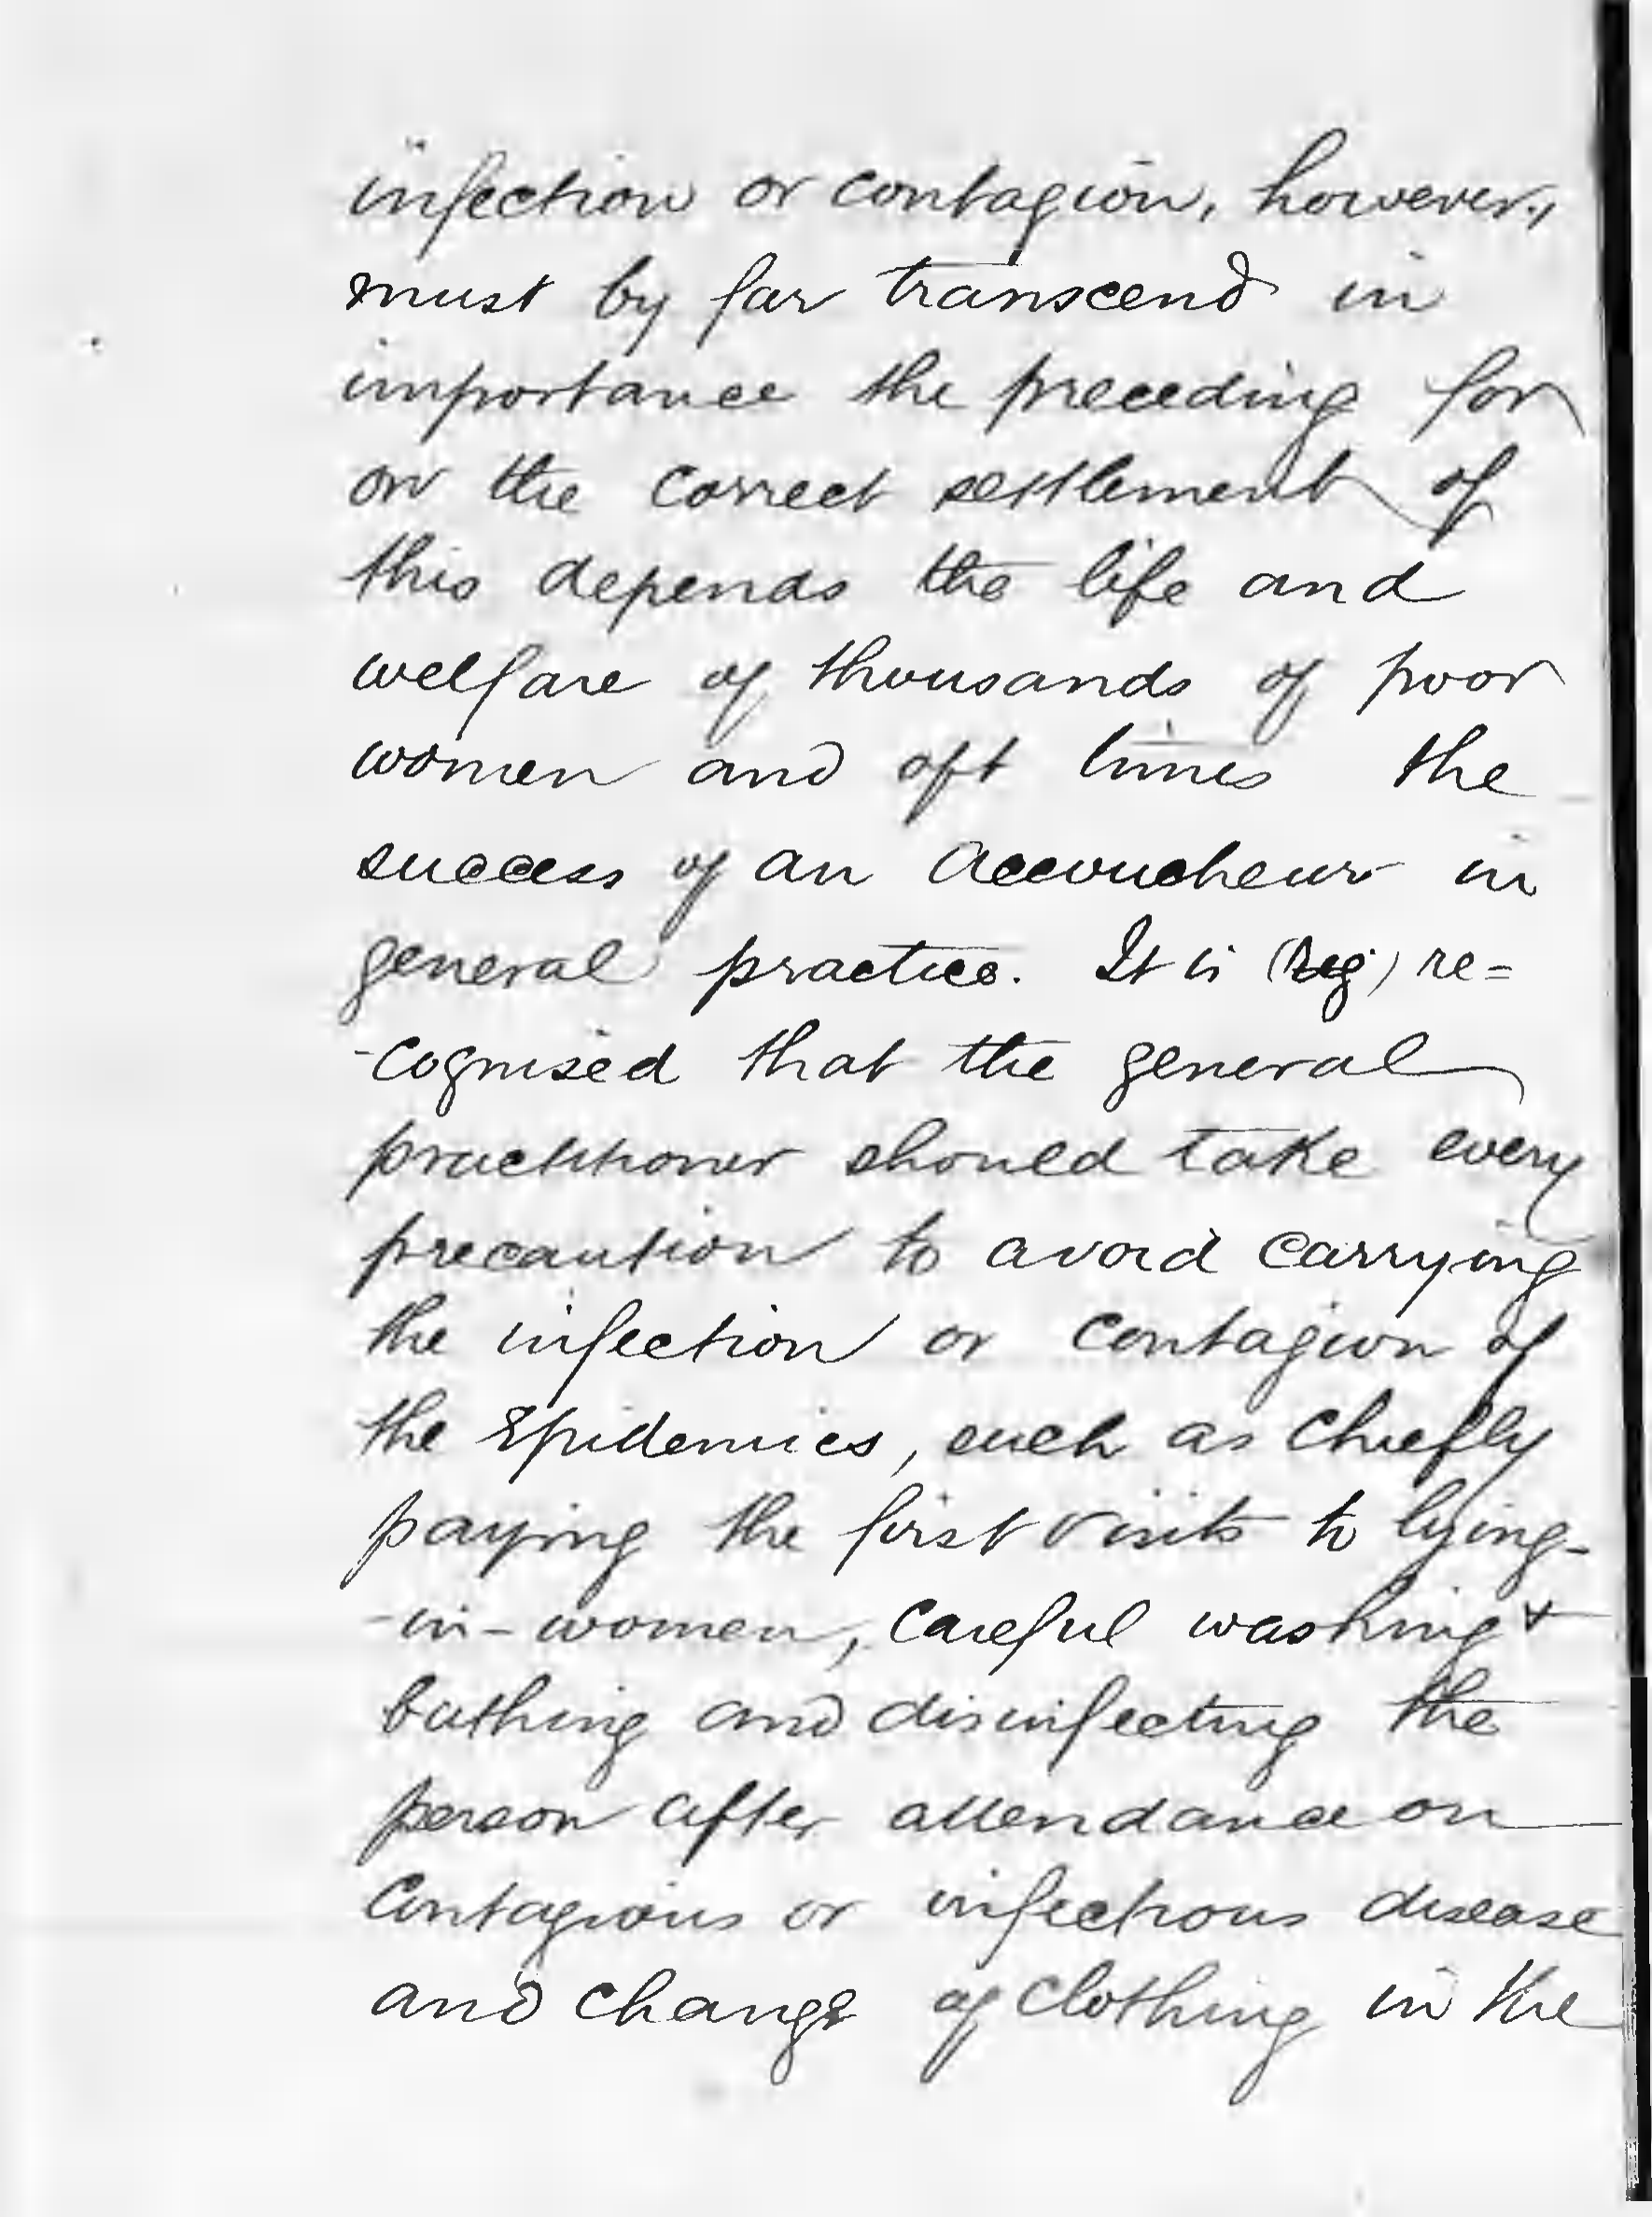 infection or contagion, however,
must by far transcend in
importance the preceding for
on the correct settlement of
this depends the life and
welfare of thousands of poor
women and oft times the
success of an accoucheur in
general practice. It is re=
-cognised that the general
practitioner should take every
precaution to avoid carrying
the infection or contagion of
the Epidemics, such as chiefly
paying the first visits to lying-
-in-women, careful washing &
bathing and disinfecting the
person after attendance on
Contagious or infectious disease
and change of clothing in the